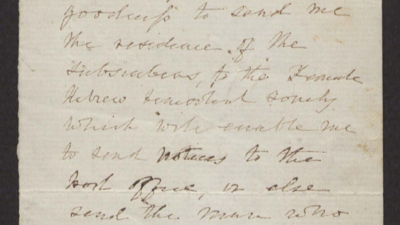 goodness to send me
the residence of the
Subscribers, to the Female
Hebrew Benevolent Society
which will enable me
to send notices to the
Post office, or else
send the man who